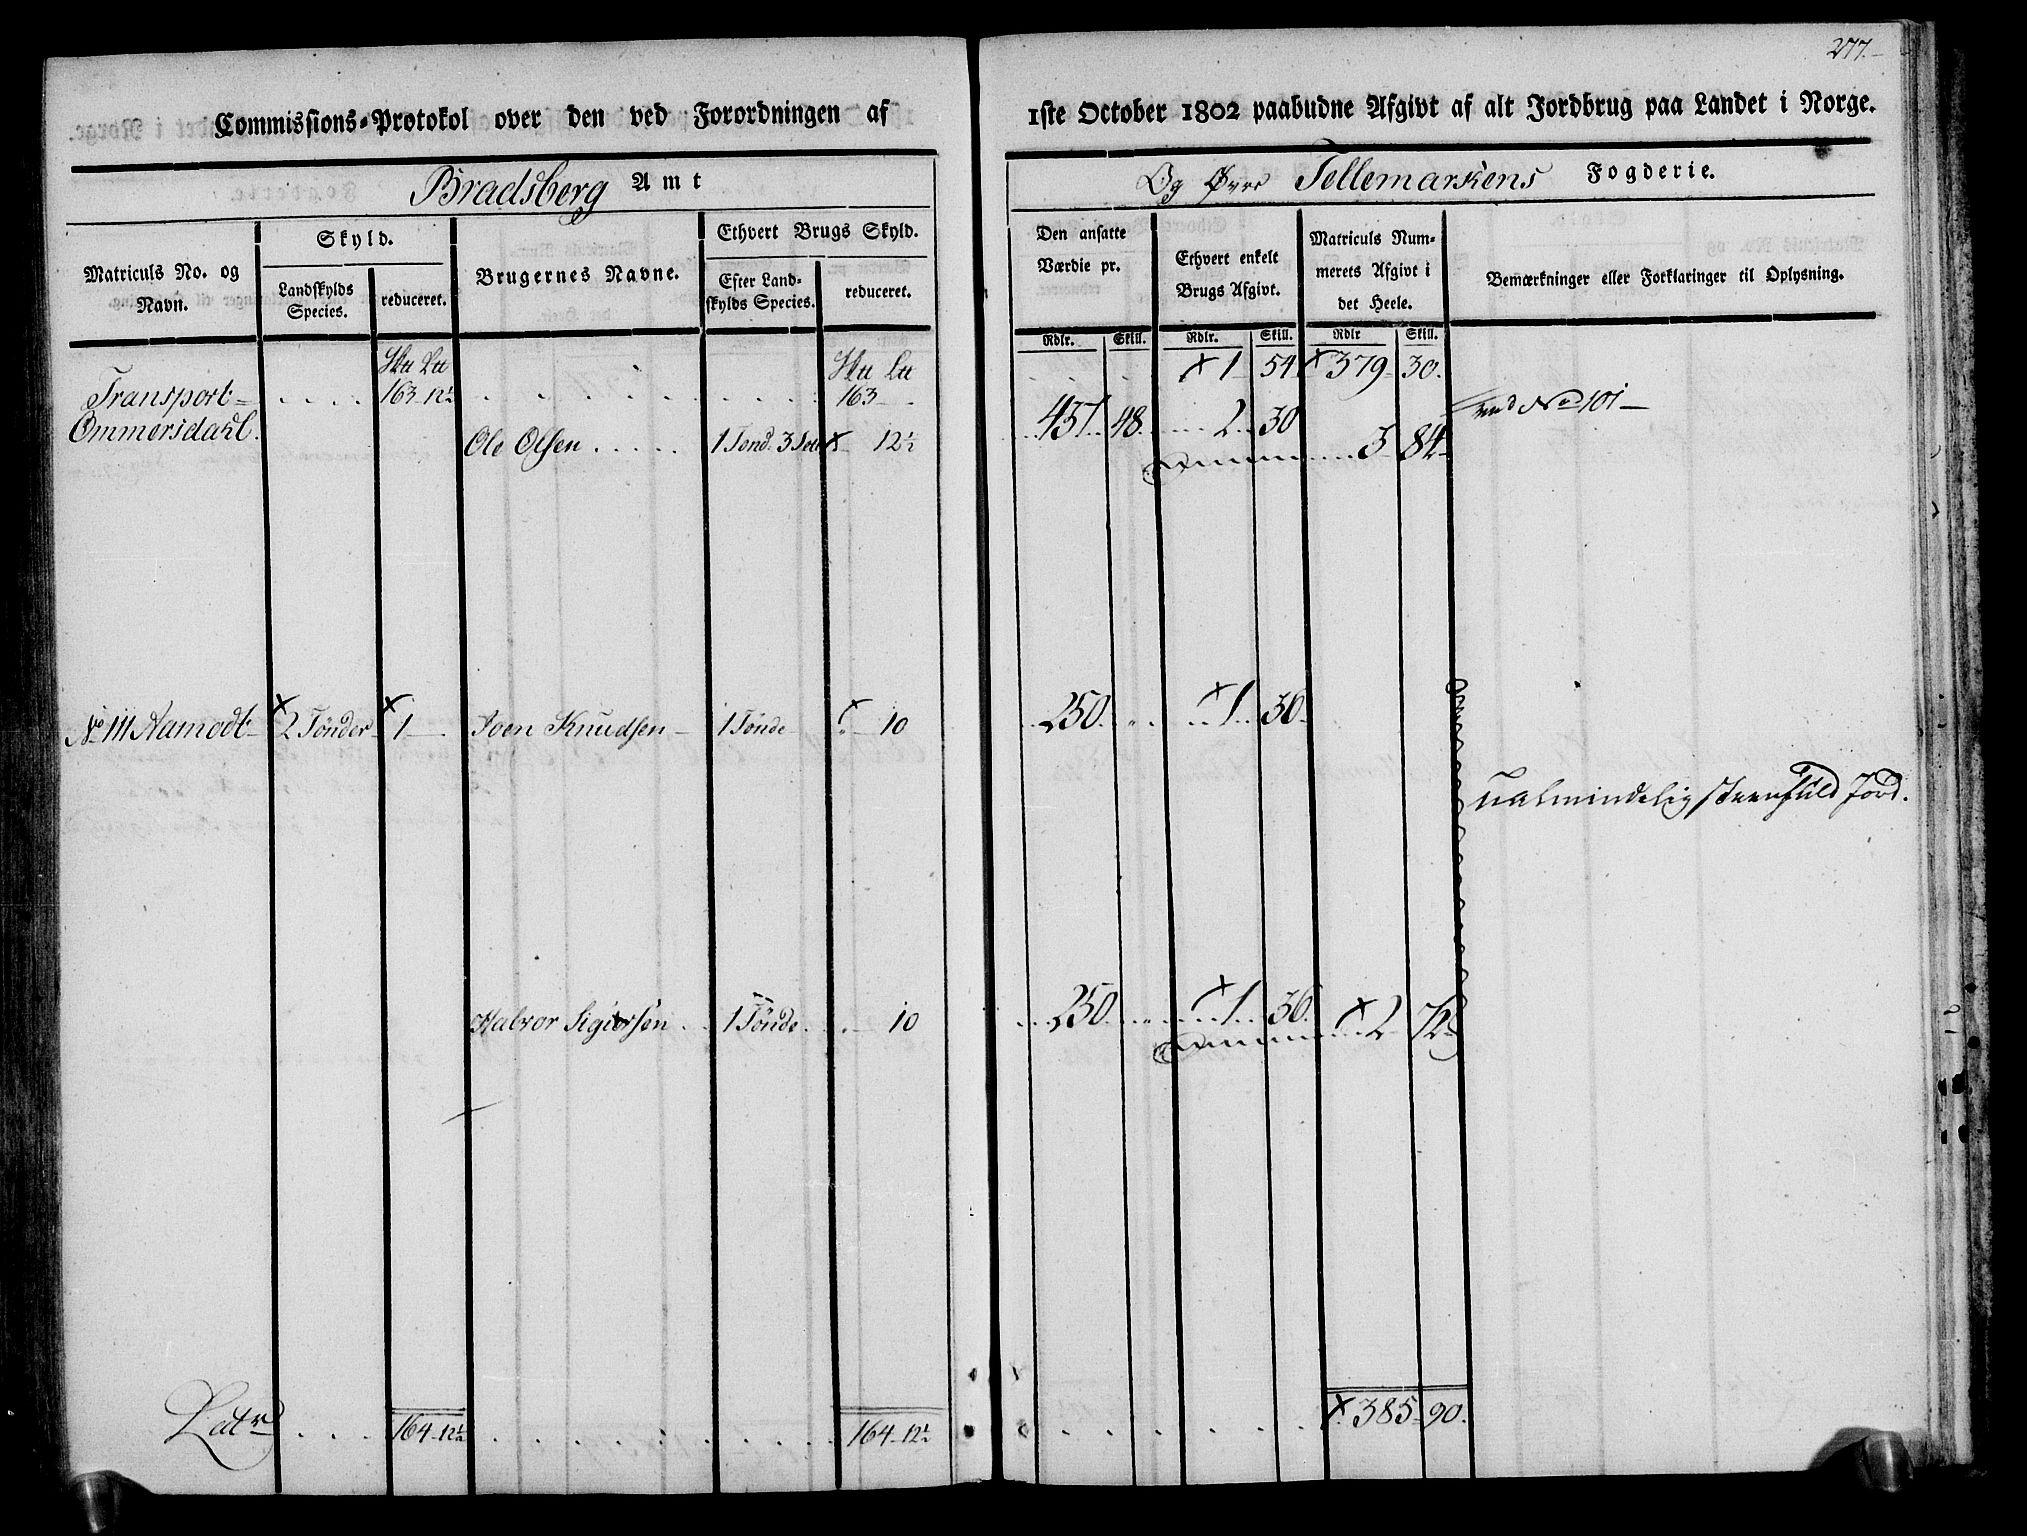 277.
Commissions-Protokol over den ved Forordningen af 1ste October 1802 paabudne Afgivt af alt Jordbrug paa Landet i Norge.
Bradsberg Amt
Og Øvre Tellemarkens Fogderie.
Matriculs No. og Navn.
Skyld.
Landskylds Species.
reduceret.
Brugernes Navne.
Ethvert Brugs Skyld.
Efter Landskylds Species.
reduceret.
Den ansatte Værdie pr.
Ethvert enkelt Brugs Afgivt.
Matriculs Nummerets Afgivt i det Heele.
Bemærkninger eller Forklaringer til Oplysning.
Rdlr. Skill. Rdlr. Skill. Rdlr Skill.
Transport 163 12½ 163 1 54 379 30.
Ommersdahl. Ole Olsen 1 Tønd. 3 12½ 437 48 2 30 3 84 No 101
No 111 Aamodt 2 Tønder 1 Joen Knudsen 1 Tønde 10 250 1 36
ualmindelig steenfuld Jord.
Halvor Sigursen 1 Tönde 10 250 1 36 2 72
Latr 164 12½ 164 12½ 385 90.